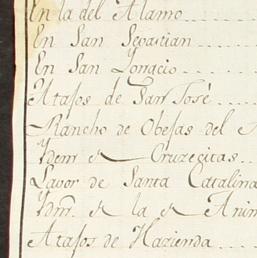 En la del Alamo
En San Sebastian
En San Ygnacio
Atajos de San José
Rancho de Obejas del
Ydem de Cruzecitas
Lavor de Santa Catalina
Ydm. de la de Anim
Atajos de Hazienda